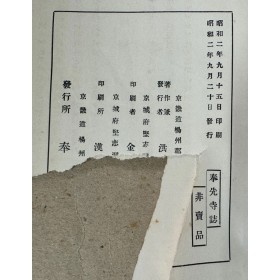 昭和二年九月十五日印刷
昭和二年九月二十日發行
奉先寺誌
非賣品
京畿道楊州郡
著作兼
發行者 洪
京城府堅志
印刷者 金
京城府堅志洞
印刷所 漢
京畿道楊州
發行所 奉